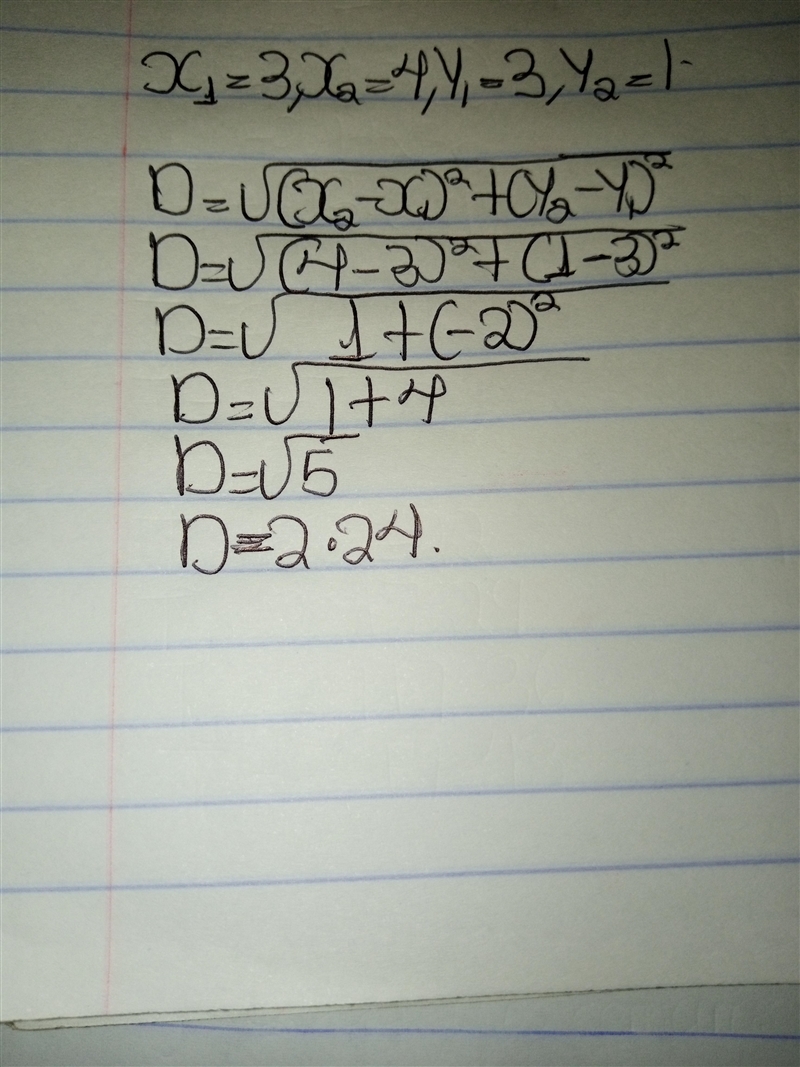 x₁=3,x₂=4,Y₁=3,Y₂=1.
D=√(x₂-x₁)²+(Y₂-Y₁)²
D=√(4-3)²+(1-3)²
D=√1+(-2)²
D=√1+4
D=√5
D=2.24.